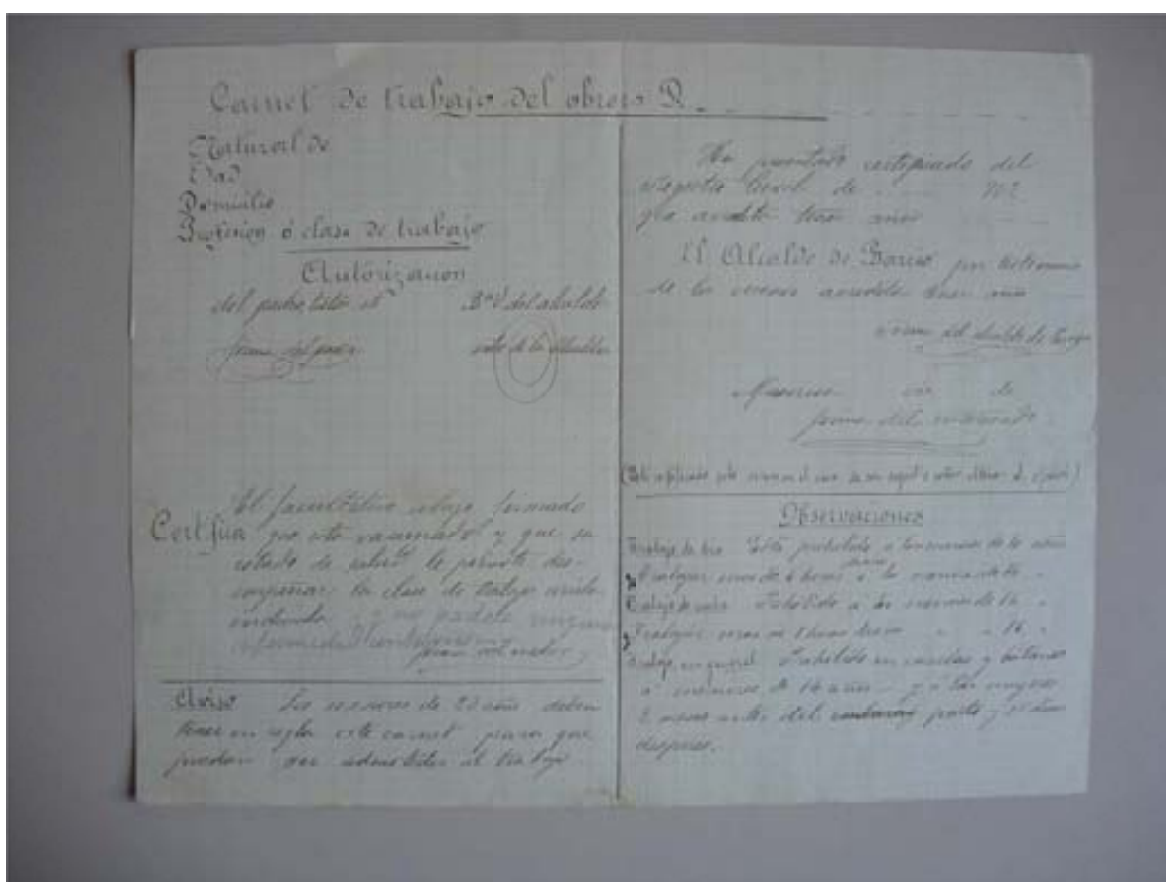 Carnet de trabajo del obrero D.
Natural de
Edad
Domicilio
Profesion ó clase de trabajo
Autorizacion
del padre, tutor etc
Bº Vº del alcalde
firma del padre
sello de la Alcaldia
Certifica
El facultativo abajo firmado
que está vacunado y que su
estado de salud le permite des-
empeñar la clase de trabajo arriba
indicada y no padece ninguna
enfermedad contagiosa
firma del medico
Aviso Los menores de 20 años deben
tener en regla este carnet para que
puedan ser admitidos al trabajo
Ha presentado certificado del
Registro Civil de
que acredita tener años
El Alcalde de Barrio por testimonio
de los vecinos acredita tener años
Firma del alcalde de Barrio
Manresa de de
firma del interesado
Observaciones
Trabajo de dia Está prohibido a los menores de 10 años
Trabajar mas de 6 horas a los menores de
Trabajo de noche Prohibido á los menores de 14 "
Trabajar mas de 8 horas " " 16 "
Trabajo en general Prohibido en
á menores de 16 años y á las mugeres
antes del parto, y
despues.